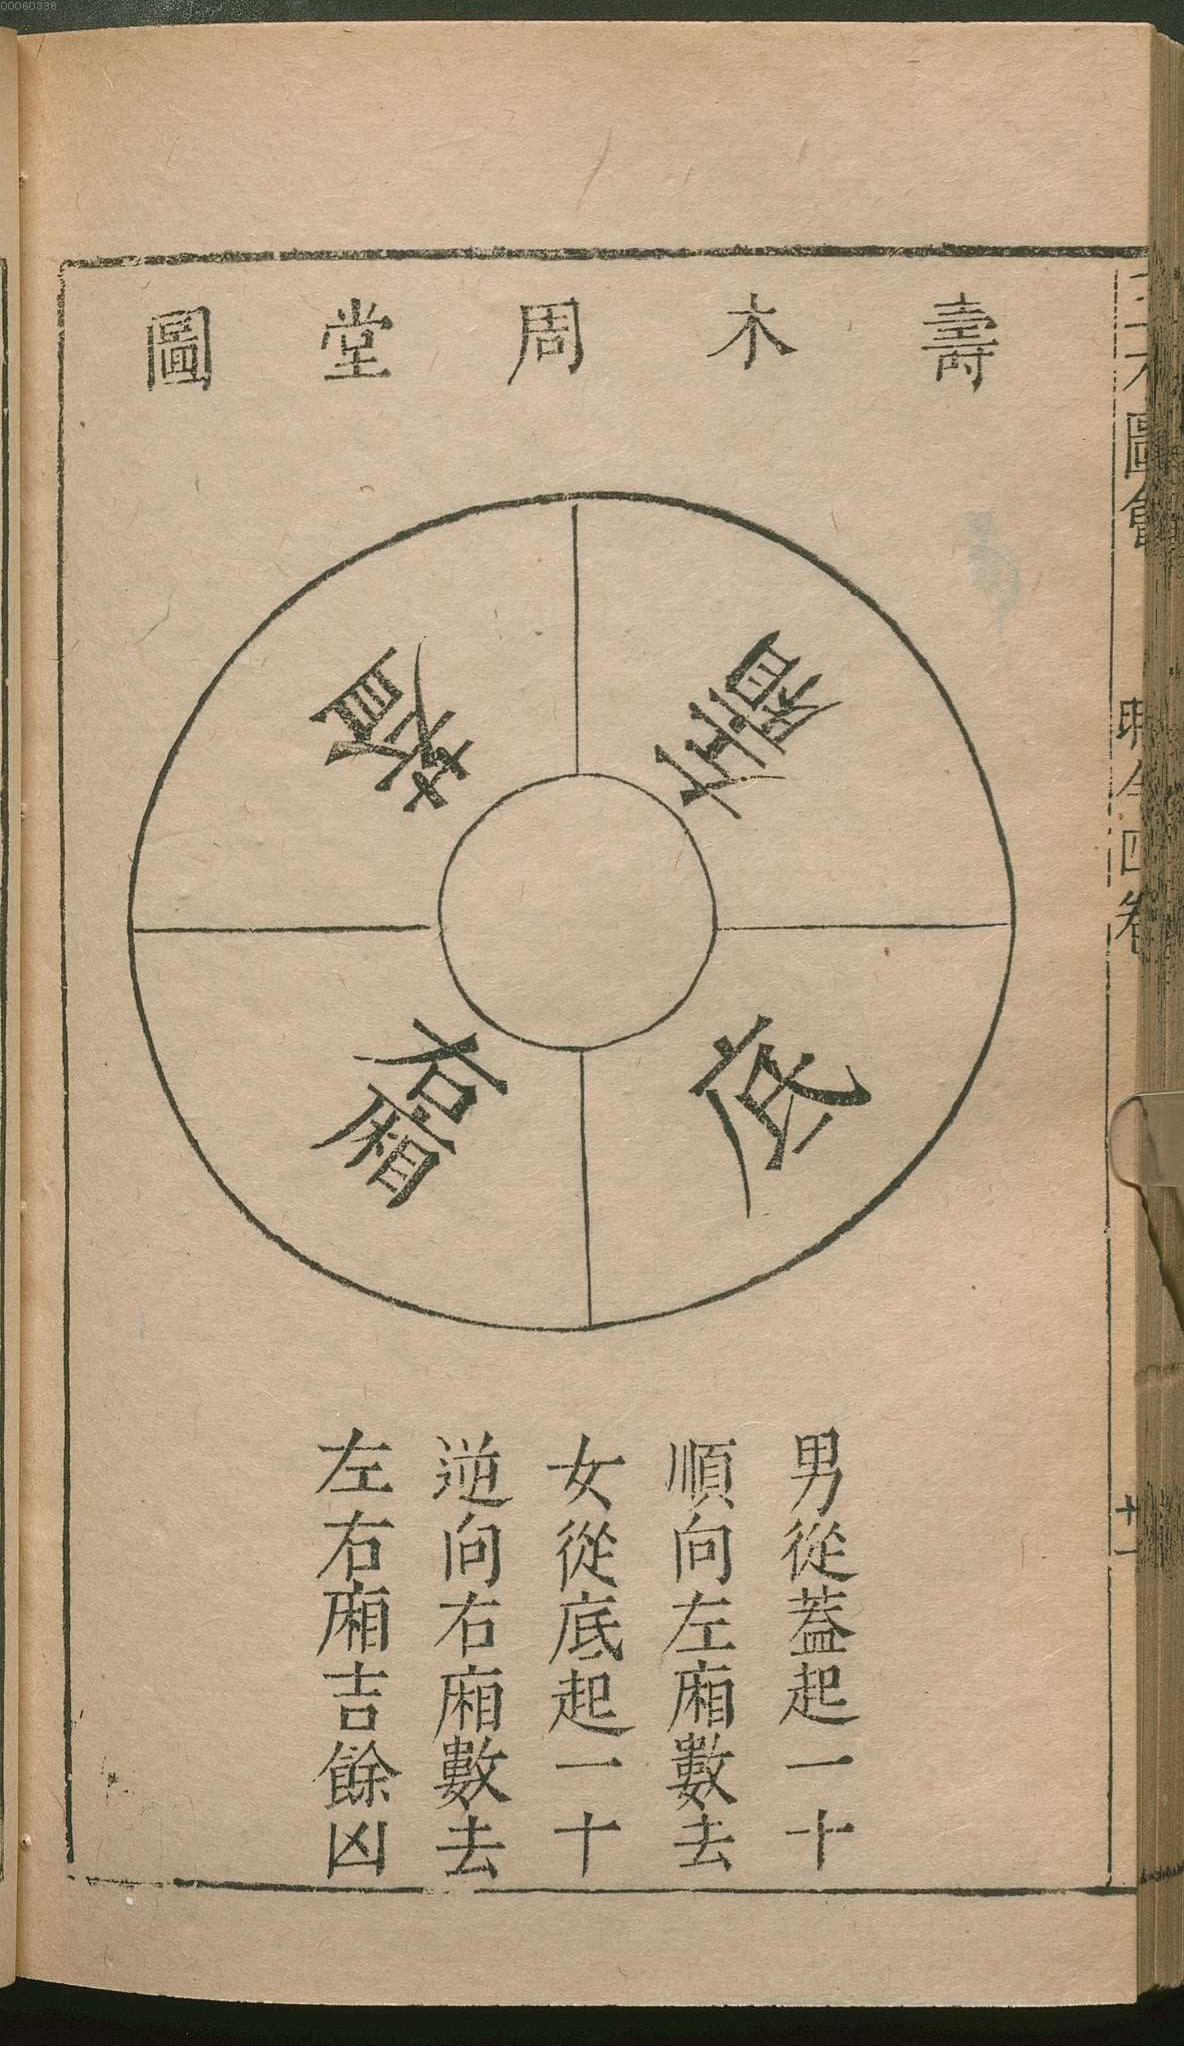 00060338
壽木周堂圖
左廂
蓋
底
右廂
男從蓋起一十
順向左廂數去
女從底起一十
逆向右廂數去
左右廂吉餘凶